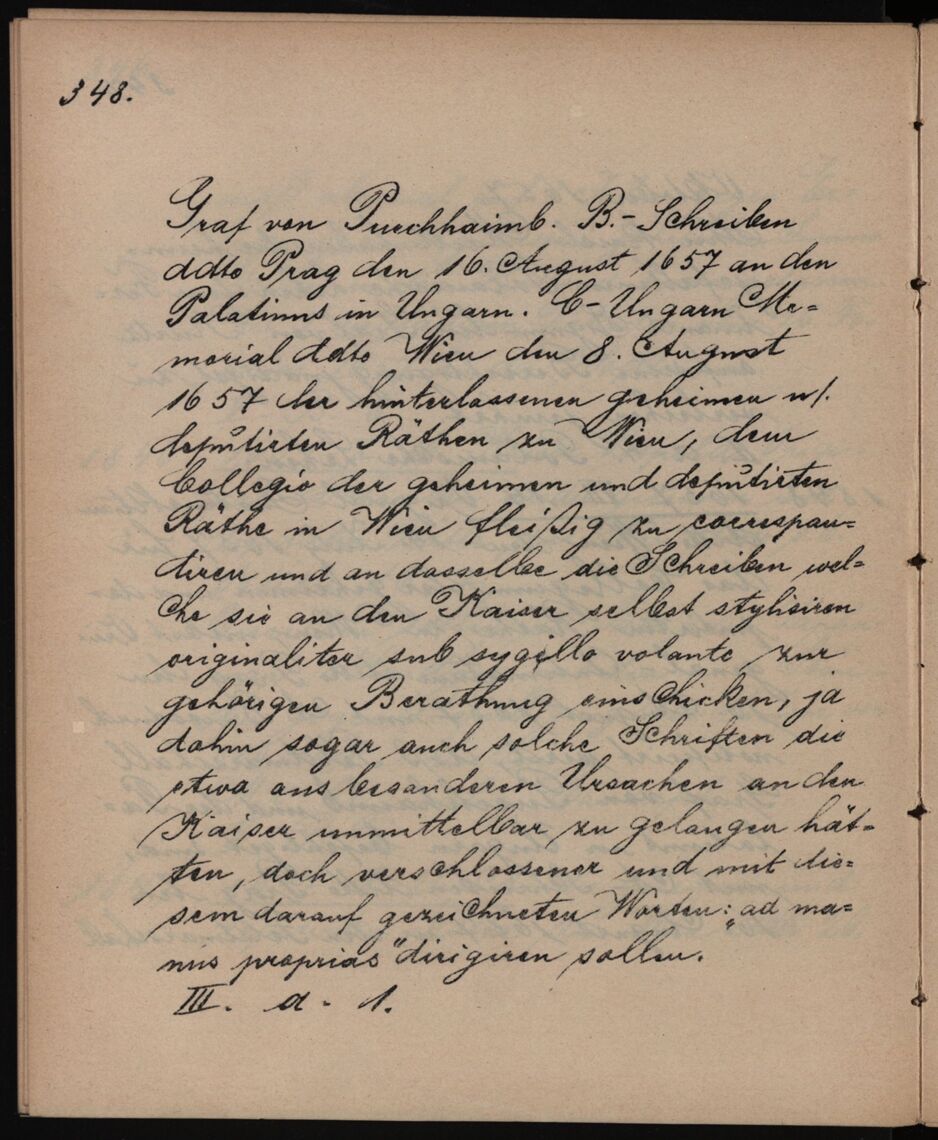 348.
Graf von Purchhaimb. B.- Schreiben
ddto Prag den 16. August 1657 an den
Palatinus in Ungarn. C- Ungarn Me=
morial ddto Wien den 8. August
1657 der hinterlassenen geheimen u/.
depŭtirten Räthen zu Wien, dem
Collegio der geheimen und depŭtirten
Räthe in Wien fleißig zu correspon=
diren und an dasselbe die Schreiben wel=
che sie an den Kaiser selbst stylisiren
originaliter sub sygillo volante zur
gehörigen Berathung einschicken, ja
dahin sogar auch solche Schriften die
etwa aus besonderen Ursachen an den
Kaiser unmittelbar zu gelangen hät=
ten, doch verschlossener und mit die=
sem darauf gezeichneten Worten: „ad ma=
nus proprias" dirigiren sollen.
III. a. 1.